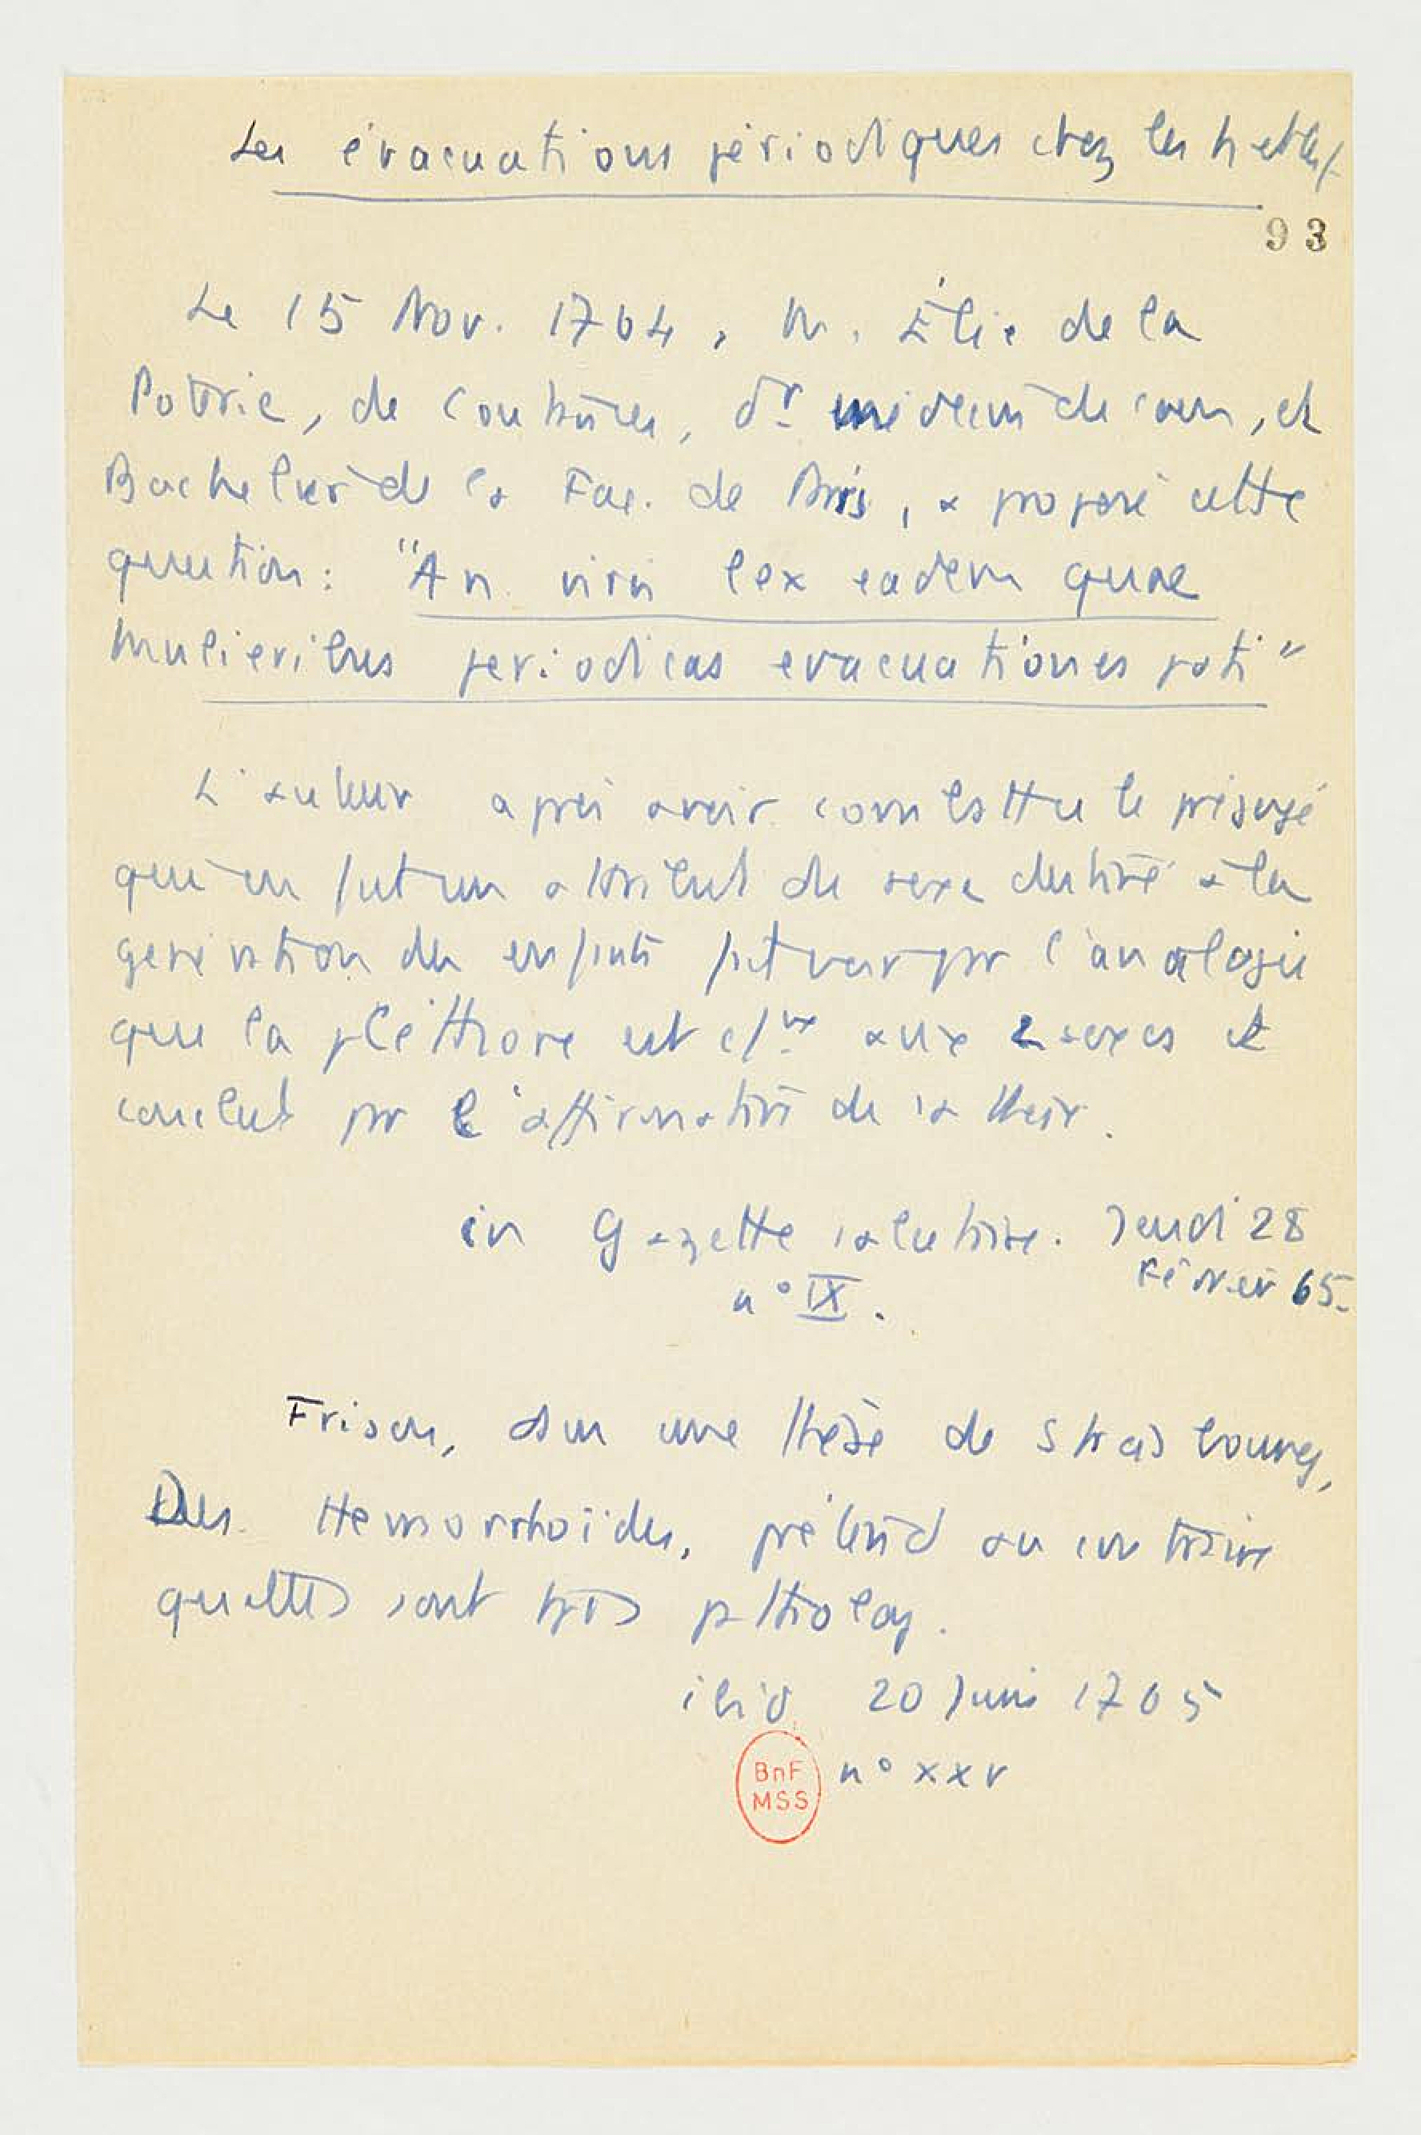 Les évacuations périodiques chez les
93
Le 15 Nov. 1764, M. Élie de la
Poterie, de Coutures, dr médecin de Caen, et
Bachelier de la Fac. de Paris, a proposé cette
question: "An viris lex eadem quae
mulieribus periodicas evacuationes pati"
L'auteur après avoir combattu le préjugé
qui en fait un attribut du sexe destiné à la
génération des enfants fait voir par l'analogie
que la pléthore est aux 2 sexes et
conclut pr l'affirmative de la thèse.
in Gazette salutaire. Jeudi 28
Février 65.
n° IX.
Frison, dans une thèse de Strasbourg,
Des Hemorrhoïdes, prétend au contraire
qu'elles sont tjrs patholog.
ibid 20 Juin 1765
n° XXV
BnF
MSS